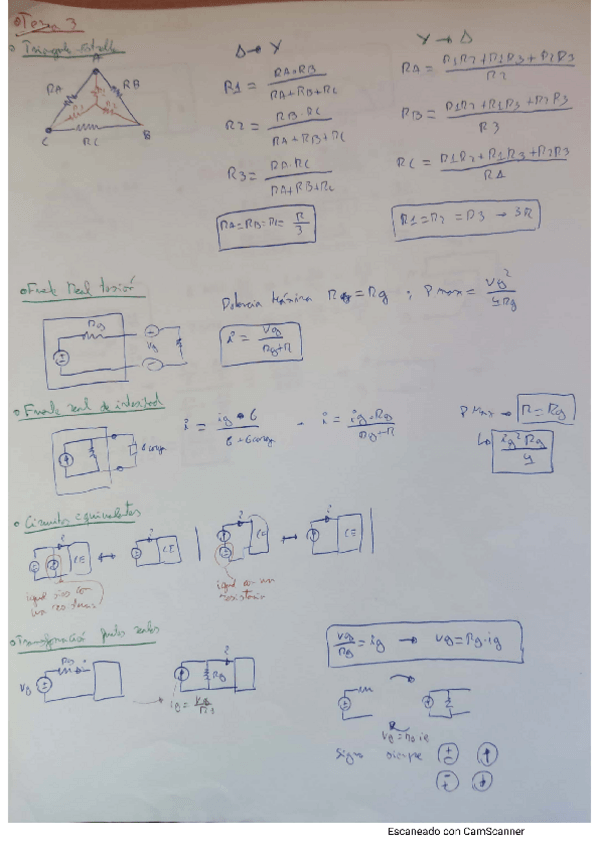 Tema 3
Triángulo-estrella
Δ → Y
Y → Δ
A
RA
RB
R1
R2
C
RC
B
R1 = RA·RB / RA+RB+RC
R2 = RB·RC / RA+RB+RC
R3 = RA·RC / RA+RB+RC
RA=RB=RC= R/3
RA = R1R2+R1R3+R2R3 / R2
RB = R1R2+R1R3+R2R3 / R3
RC = R1R2+R1R3+R2R3 / R1
R1=R2=R3 → 3R
Fuente Real tensión
Rg
Vg
Potencia Máxima R = Rg ; Pmax = Vg² / 4Rg
i = Vg / Rg+R
Fuente real de intensidad
G carga
i = ig · G / G + Gcarga
i = ig · Rg / Rg+R
P Max → R=Rg
ig² Rg / 4
Circuitos equivalentes
i
CE
i
CE
i
CE
i
CE
igual con una resistencia
Transformación fuentes reales
Vg
Rg
i
i
Rg
ig = Vg / Rg
Vg / Rg = ig → Vg = Rg·ig
Vg=Rg·ig
Signo siempre
Escaneado con CamScanner